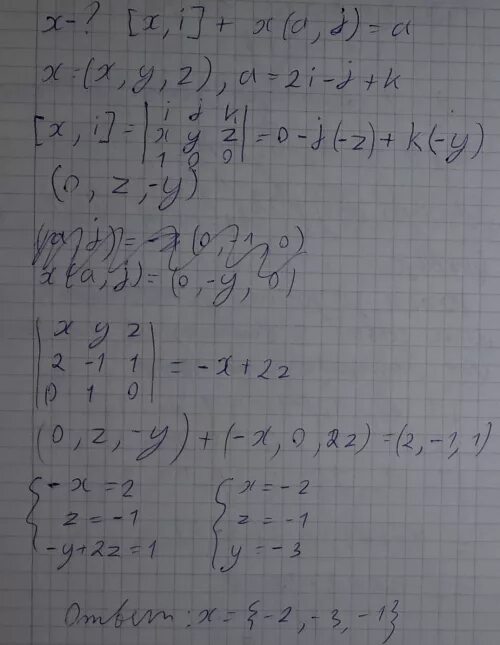 x-? [x,i]+ x(a,j)=a
x=(x,y,z), a=2i-j+k
[x,i]=|i j k; x y z; 1 0 0|=0-j(-z)+k(-y)
(0, z, -y)
x(a,j)=(0,-y,0)
|x y z
2 -1 1
0 1 0| = -x+2z
(0, z, -y)+(-x,0,2z)=(2,-1,1)
{-x=2 {x=-2
z=-1 z=-1
-y+2z=1 y=-3
Ответ: x={-2,-3,-1}